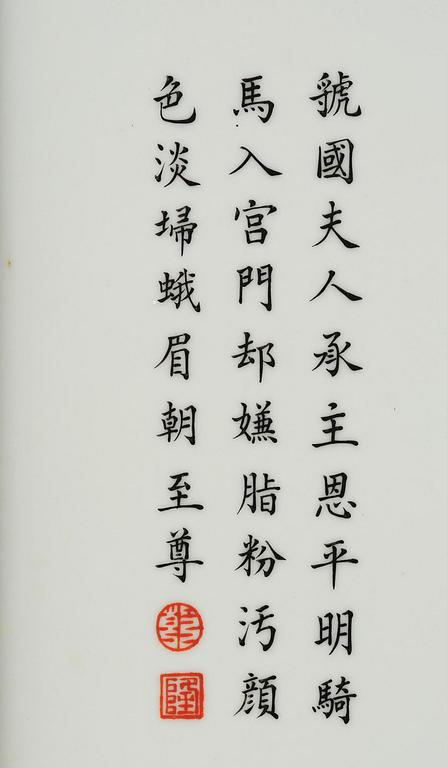 虢國夫人承主恩平明騎
馬入宮門却嫌脂粉汚顔
色淡埽蛾眉朝至尊
乾
隆